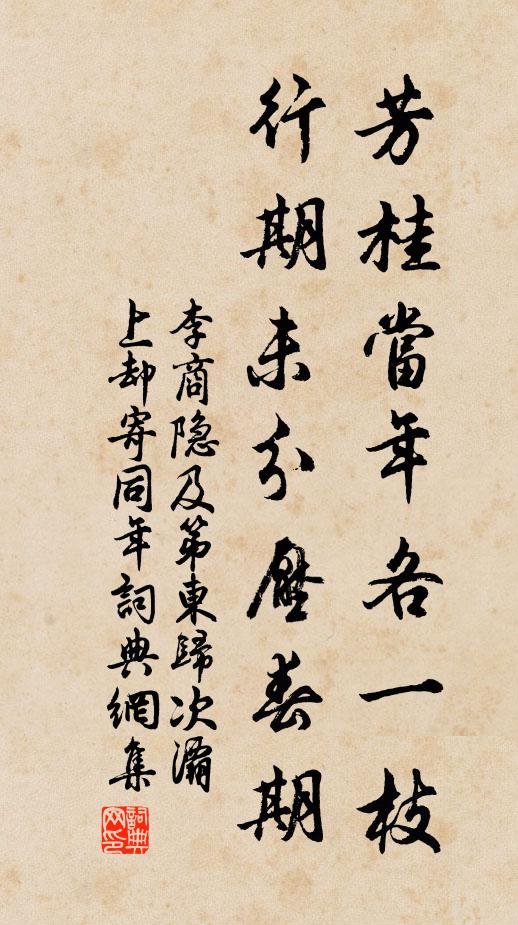 芳桂當年各一枝
行期未分壓春期
李商隐及第東歸次灞
上却寄同年詞典網集
詞典
网印